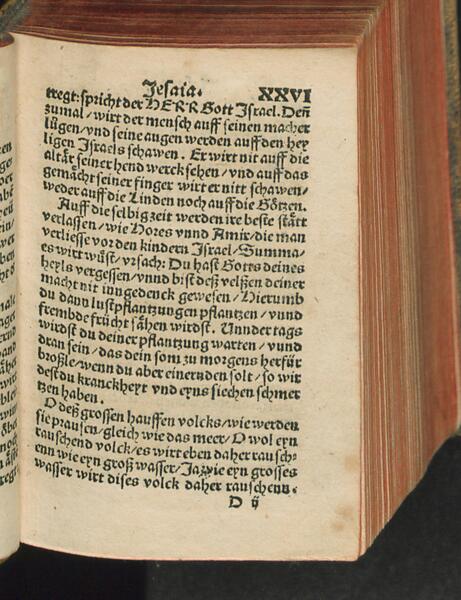 Jesaia. XXVI
tregt: spricht der HERR Gott Israel. Deñ
zumal/ wirt der mensch auff seinen macher
lůgen/ vnd seine augen werden auff den hey
ligen Israels schawen. Er wirt nit auff die
altår seiner hend werck sehen/ vnd auff das
gemåcht seiner finger wirt er nitt schawen/
weder auff die Linden noch auff die Götzen.
Auff die selbig zeit werden ire beste stått
verlassen/ wie Hores vnnd Amir/ die man
verliesse vor den kindern Israel/ Summa/
es wirt wůst/ vrsach: Du hast Gotts deines
heyls vergessen/ vnnd bist deß velßen deiner
macht nit inngedenck gewesen/ Hierumb
du dann lustpflantzungen pflantzen/ vnnd
frembde frücht såhen wirdst. Vnnder tags
wirdst du deiner pflantzung warten/ vnnd
dran sein/ das dein som zu morgens herfür
broßle/ wenn du aber einernden solt/ so wir
dest du kranckheyt vnd eyns siechen schmer
tzen haben.
O deß grossen hauffen volcks/ wie werden
sie prausen/ gleich wie das meer/ O wol eyn
rauschend volck/ es wirt eben daher rausch-
enn wie eyn groß wasser/ Ja/ wie eyn grosses
wasser wirt dises volck daher rauschenn.
D ij